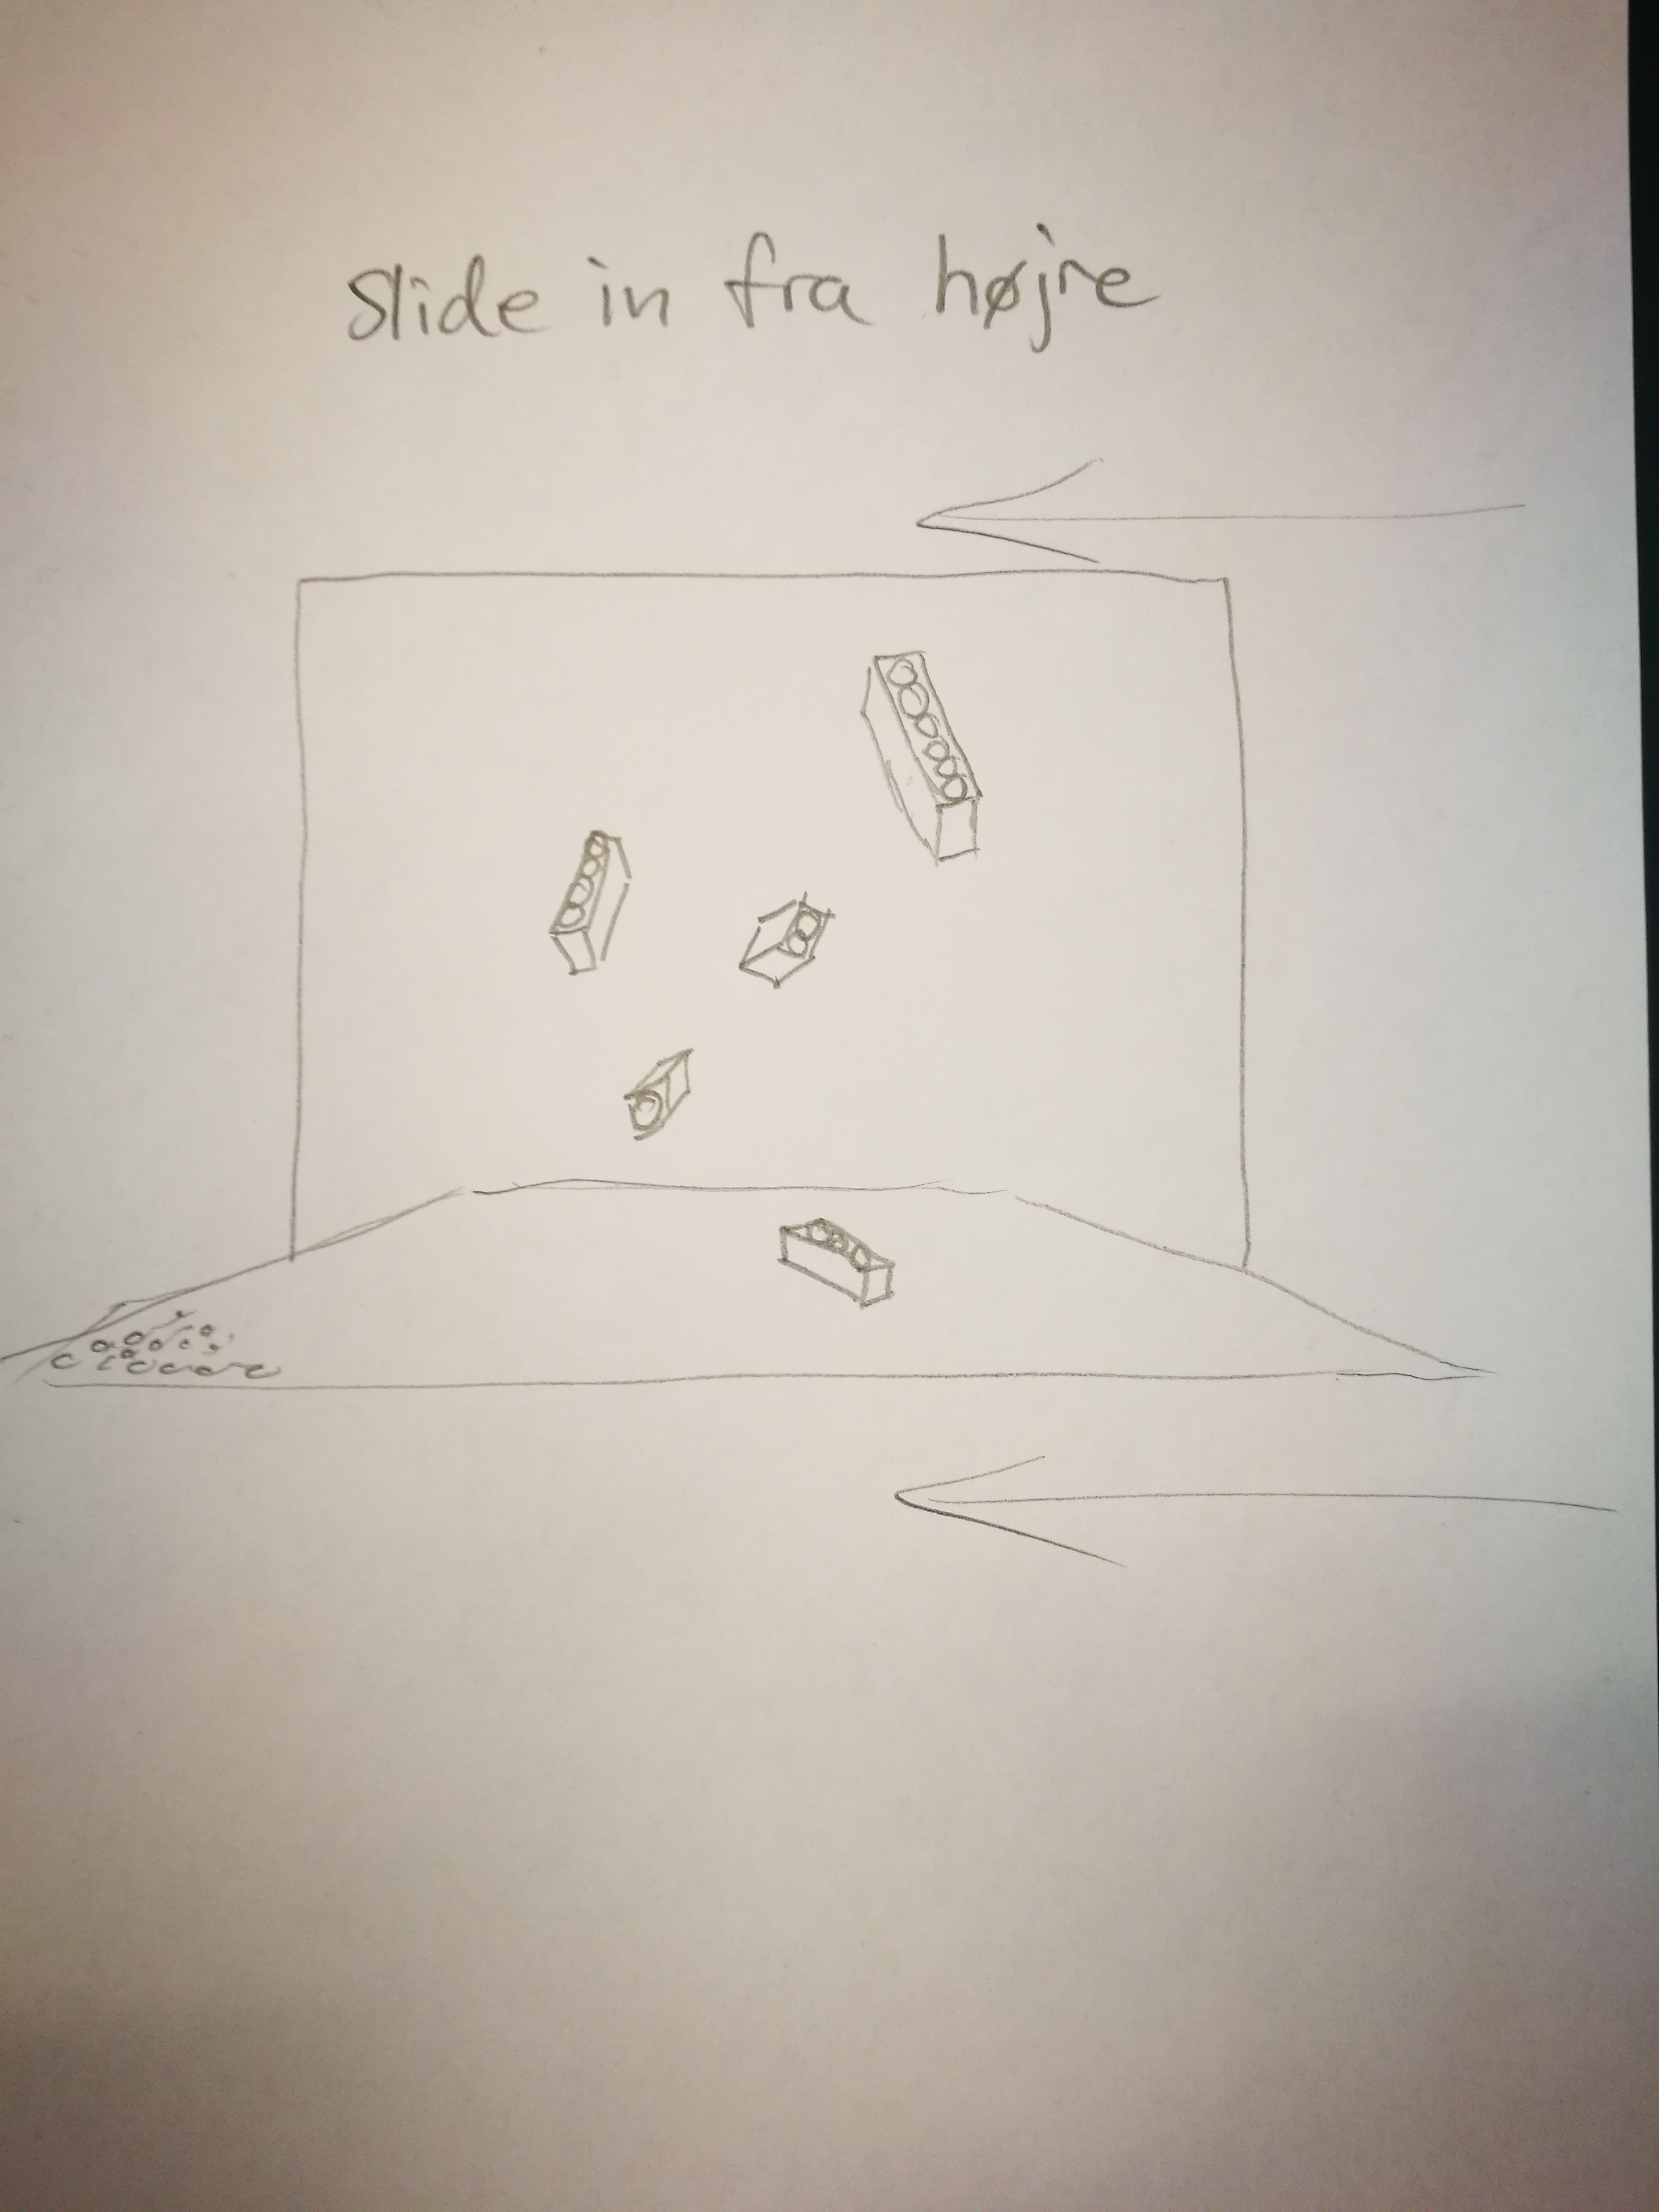 Slide in fra højre